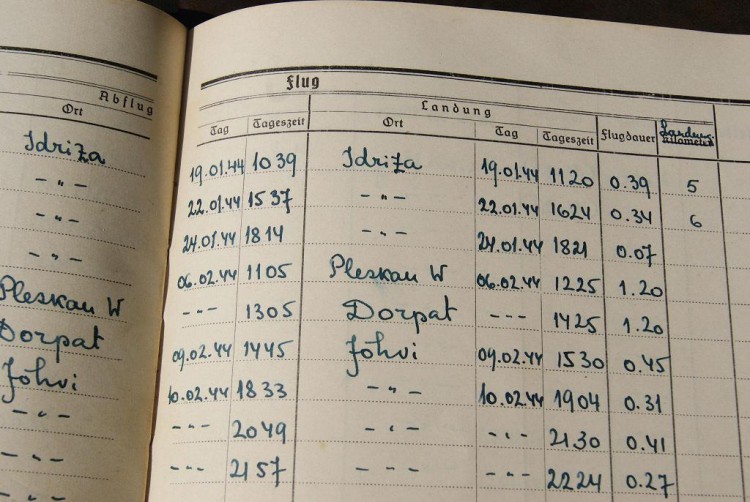 Flug
Abflug Landung
Ort Tag Tageszeit Ort Tag Tageszeit Flugdauer Landung
Idriza 19.01.44 10 39 Idriza 19.01.44 11 20 0.39 5
- " - 22.01.44 15 37 - " - 22.01.44 1624 0.34 6
- " - 24.01.44 18 14 - " - 24.01.44 1821 0.07
- " - 06.02.44 11 05 Pleskau W 06.02.44 1225 1.20
Pleskau W - - - 1305 Dorpat - - - 1425 1.20
Dorpat 09.02.44 1445 Jöhvi 09.02.44 1530 0.45
Jöhvi 10.02.44 18 33 - " - 10.02.44 1904 0.31
- " - - - - 2049 - " - - " - 2130 0.41
- " - - - - 2157 - " - - - - 2224 0.27
- " -